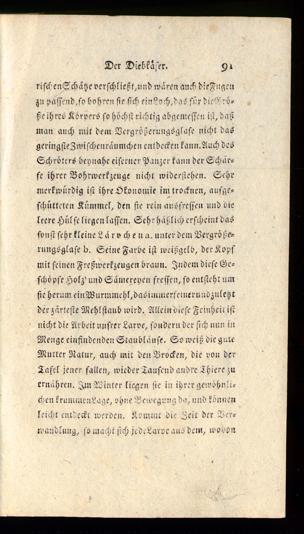 Der Diebkäfer. 91
rischen Schätze verschließt, und wären auch die Fugen
zu passend, so bohren sie sich ein Loch, das für die Grö-
ße ihres Körpers so höchst richtig abgemessen ist, daß
man auch mit dem Vergrößerungsglase nicht das
geringste Zwischenräumchen entdecken kann. Auch des
Schröters beynahe eiserner Panzer kann der Schär-
fe ihrer Bohrwerkzeuge nicht widerstehen. Sehr
merkwürdig ist ihre Ökonomie im trocknen, aufge-
schütteten Kümmel, den sie rein ausfressen und die
leere Hülse liegen lassen. Sehr häßlich erscheint das
sonst sehr kleine Lärvchen a. unter dem Vergröße-
rungsglase b. Seine Farbe ist weißgelb, der Kopf
mit seinen Freßwerkzeugen braun. Indem diese Ge-
schöpfe Holz und Sämereyen fressen, so entsteht um
sie herum ein Wurmmehl, das immer feiner und zuletzt
der zärteste Mehlstaub wird. Allein diese Feinheit ist
nicht die Arbeit unsrer Larve, sondern der sich nun in
Menge einfindenden Staubläuse. So weiß die gute
Mutter Natur, auch mit den Brocken, die von der
Tafel jener fallen, wieder Tausend andre Thiere zu
ernähren. Im Winter liegen sie in ihrer gewöhnli-
chen krummen Lage, ohne Bewegung da, und können
leicht entdeckt werden. Kommt die Zeit der Ver-
wandlung, so macht sich jede Larve aus dem, wovon